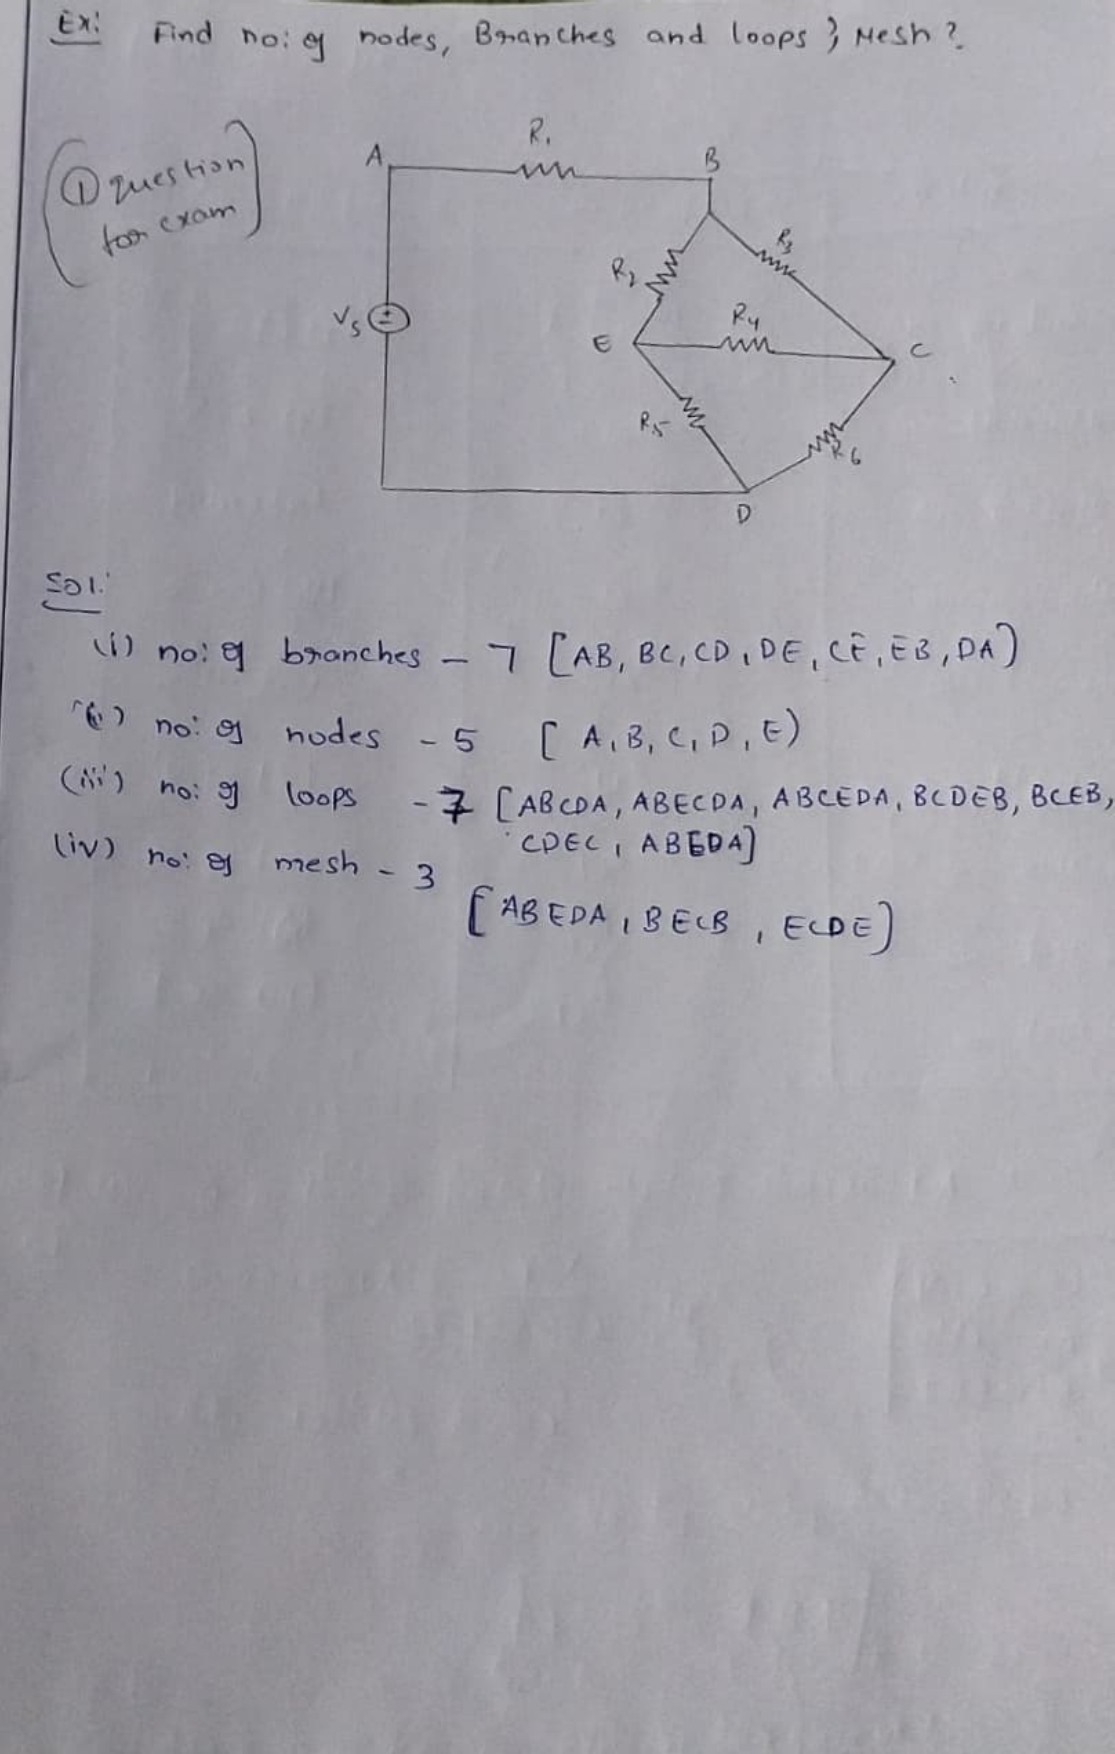 Ex: Find no: of nodes, Branches and loops & Mesh?
(① question
for exam)
R1
A
B
R3
R2
R4
Vs
E
C
R5
R6
D
Sol:
(i) no: of branches - 7 [AB, BC, CD, DE, CE, EB, DA)
(ii) no: of nodes - 5 [A, B, C, D, E)
(iii) no: of loops - 7 [ABCDA, ABECDA, ABCEDA, BCDEB, BCEB,
CDEC, ABEDA]
(iv) no: of mesh - 3
[ABEDA, BECB, ECDE]